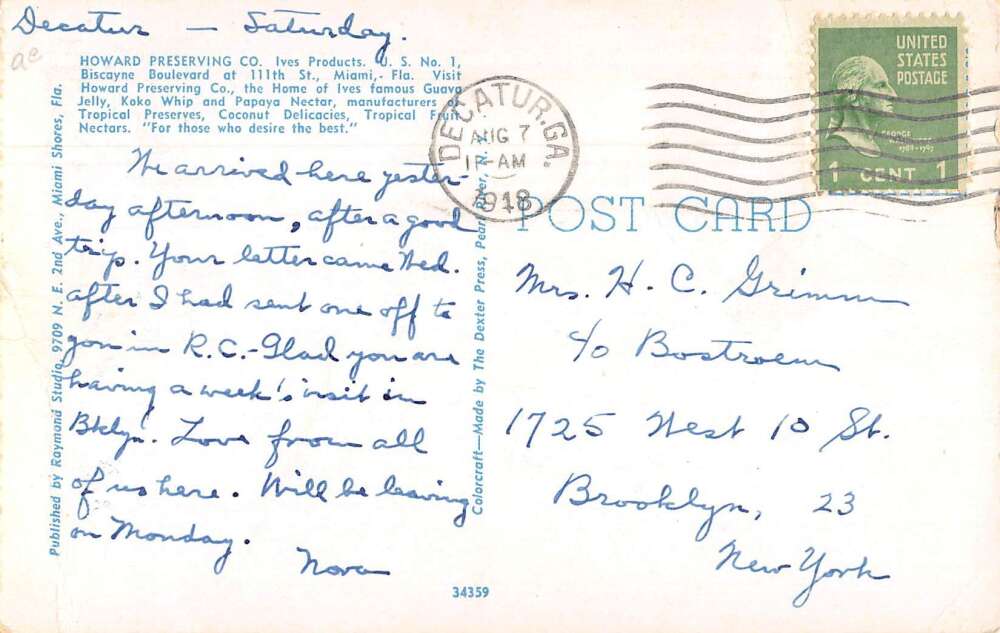 Decatur — Saturday.
HOWARD PRESERVING CO. Ives Products. U. S. No. 1,
Biscayne Boulevard at 111th St., Miami, Fla. Visit
Howard Preserving Co., the Home of Ives famous Guava
Jelly, Koko Whip and Papaya Nectar, manufacturers of
Tropical Preserves, Coconut Delicacies, Tropical Fruit
Nectars. "For those who desire the best."
We arrived here yester-
day afternoon, after a good
trip. Your letter came Wed.
after I had sent one off to
you in R.C.-Glad you are
having a week's visit in
Bklyn. Love from all
of us here. Will be leaving
on Monday.
Nova
Published by Raymond Studio, 9709 N. E. 2nd Ave., Miami Shores, Fla.
Colorcraft—Made by The Dexter Press, Pearl River, N. Y.
34359
DECATUR, GA.
AUG 7
1948
UNITED
STATES
POSTAGE
GEORGE
1 CENT 1
POST CARD
Mrs. H. C. Grimm
c/o Bostroem
1725 West 10 St.
Brooklyn, 23
New York